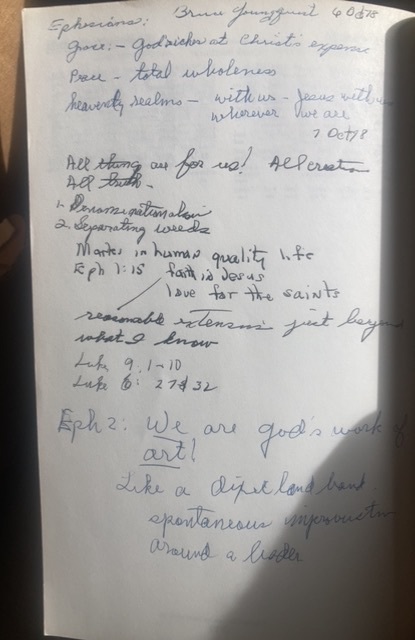 Ephesians: Bruce Youngquist 6 Oct 18
Grace: - God's riches at Christ's expense
Peace - total wholeness
heavenly realms - with us - Jesus with us
wherever we are
7 Oct 18
All thing are for us! All creation
All truth -
1. Denominationalism
2. Separating weeds
Marks in human quality life
Eph 1:15 faith in Jesus
love for the saints
reasonable extension just beyond
what I know
Luke 9, 1-10
Luke 6: 27 32
Eph 2: We are god's work of
art!
Like a band
spontaneous
around a leader